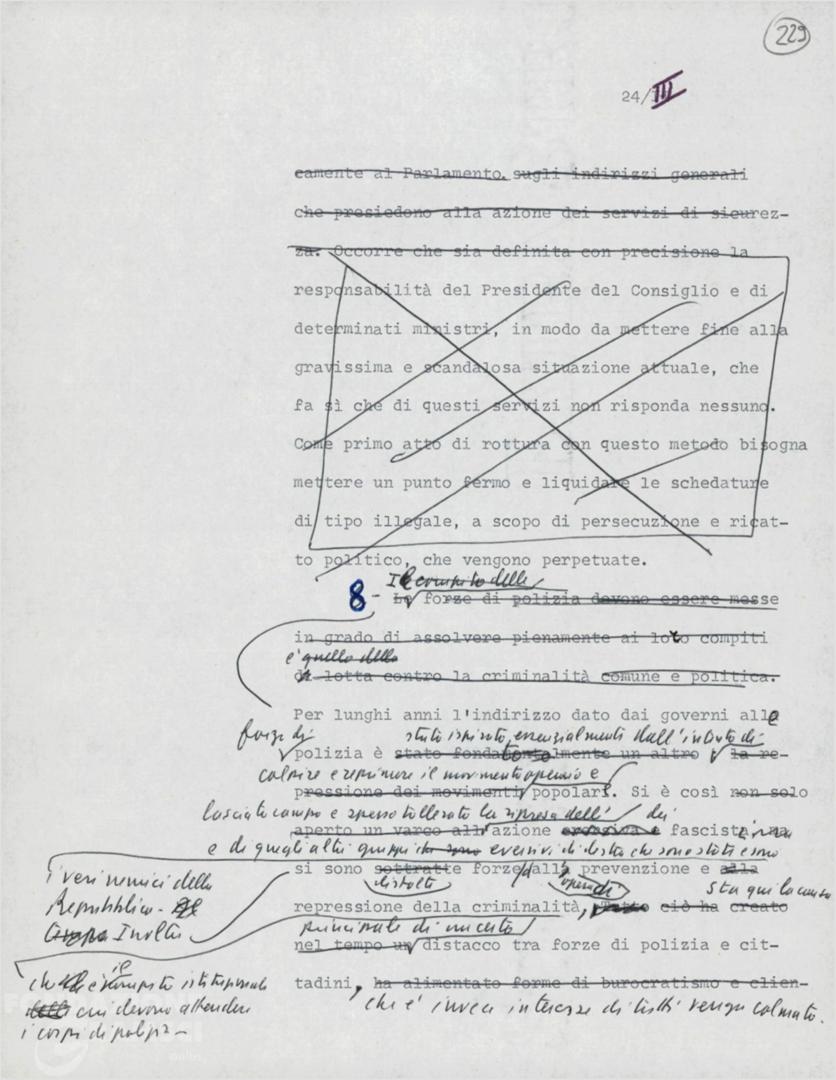 229
24/III
camente al Parlamento. sugli indirizzi generali
che presiedono alla azione dei servizi di sicurez-
za. Occorre che sia definita con precisione la
responsabilità del Presidente del Consiglio e di
determinati ministri, in modo da mettere fine alla
gravissima e scandalosa situazione attuale, che
fa sì che di questi servizi non risponda nessuno.
Come primo atto di rottura con questo metodo bisogna
mettere un punto fermo e liquidare le schedature
di tipo illegale, a scopo di persecuzione e ricat-
to politico, che vengono perpetuate.
Il compito delle
8 - Le forze di polizia devono essere messe
in grado di assolvere pienamente ai loro compiti
è quello della
di lotta contro la criminalità comune e politica.
Per lunghi anni l'indirizzo dato dai governi alle
forze di stato ispirato, essenzialmente dall'intento di
polizia è stato fondamentalmente un altro la re-
colpire e reprimere il movimento operaio e
pressione dei movimenti popolari. Si è così non solo
lasciato campo e spesso tollerato la ripresa dell' dei
aperto un varco all'azione eversiva e fascista, ma
e di quegli altri gruppi che sono eversivi di destra che sono stati e sono
si sono sottratte forze dalla prevenzione e alla
i veri nemici della
Repubblica -
Inoltre
distolte
opera di
sta qui la causa
repressione della criminalità, Tutto ciò ha creato
principale di un certo
nel tempo un distacco tra forze di polizia e cit-
tadini, ha alimentato forme di burocratismo e clien-
che è invece interesse di tutti venga colmato.
che è il compito istituzionale
cui devono attendere
i corpi di polizia -